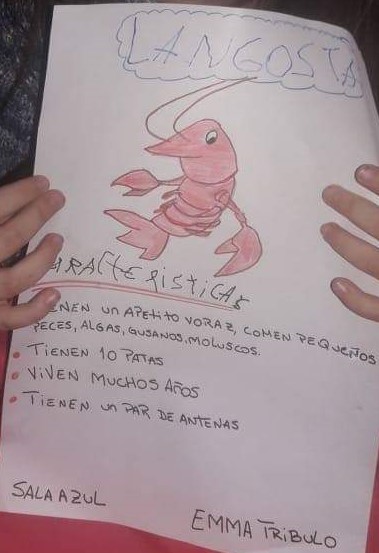 LANGOSTA
CARACTERISTICAS
TIENEN UN APETITO VORAZ, COMEN PEQUEÑOS
PECES, ALGAS, GUSANOS, MOLUSCOS.
TIENEN 10 PATAS
VIVEN MUCHOS AÑOS
TIENEN UN PAR DE ANTENAS
SALA AZUL
EMMA TRIBULO